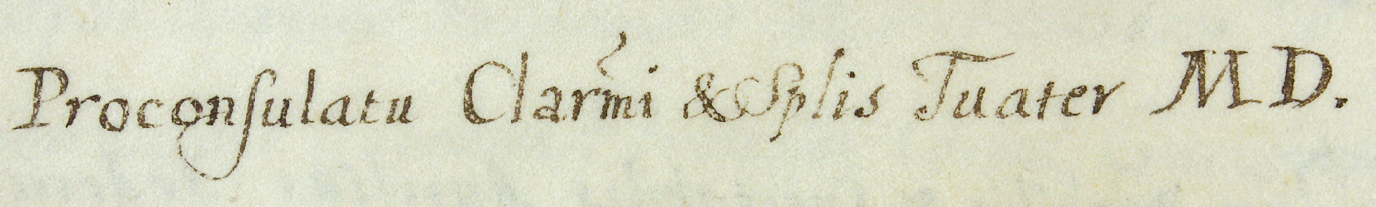 Proconſulatu Clarm̃i & Splis Tuater M D.